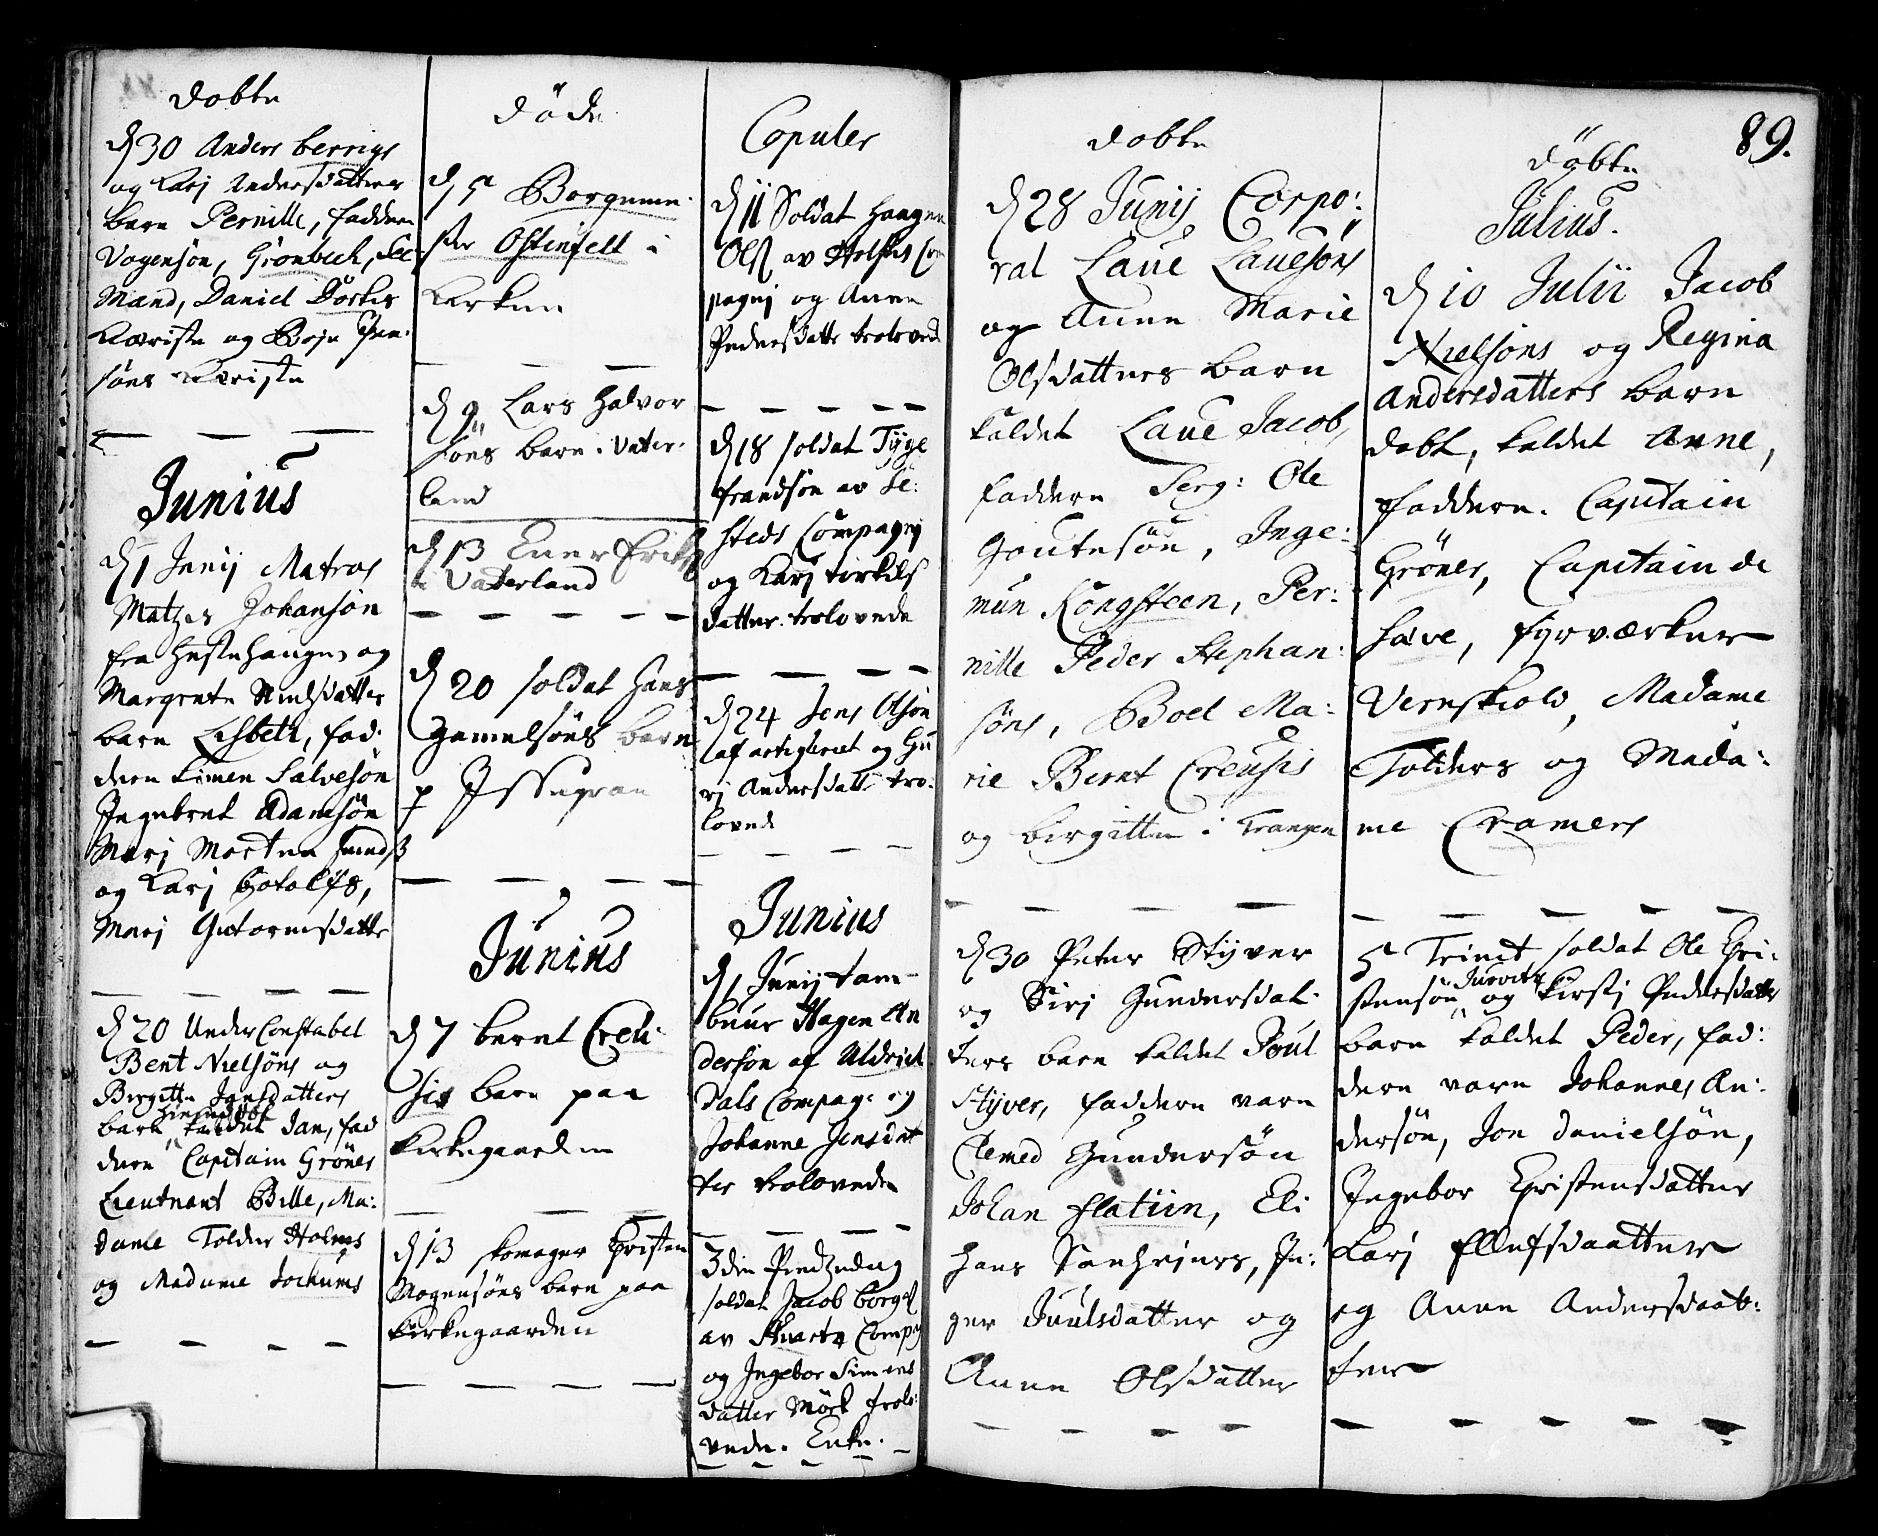 dobte
d 30 Anders berrigs
og Karj Andersdatters
barn Pernille, faddere
Vogensøn, Grønbech,
Mand, Daniel
og Boje
søns
Junius
d 1 Junij Matros
Matzes Johansøn
fra Hestehaugen og
Margrete Nielsdatter
barn Lisbeth, fad:
dere Simen Salvesøn
Ingebret Adamsøn
Marj Morten
og Karj Botolfs,
Marj Gutormsdatter
d 20 Under Constabel
Bent Nielsøns og
Birgitte Jansdatters
barn kaldet Jan, fad
dere Capitain Grøner
Lieutnant Bille, Ma:
dame Tolder Holmes
og Madame Jochums
döde
d 5 Borgeme:
ster Ostenfelt i
Kerken
d 9 Lars Halvor
søns barn i Vater:
land
d 13 Ener
i Vaterland
d 20 soldat Hans
Gamelsøns barn
p
Junius
d 7 bernt Creu:
sis barn paa
Kirkegaarden
d 13 skomager Christen
Mogensøns barn paa
Kirkegaarden
Copuler
d 11 Soldat Haagen
Ols av Com
pagnj og Anne
Pedersdatter trolovede
d 18 soldat Tyge
frandsøn av Se:
steds Compagnj
og Karj Torkils
datter trolovede
d 24 Jens Olsøn
af artigleriet og Gu
rj Andersdatt tro:
lovede
Junius
d 1 Junij tam
buur Hagen An
dersøn af Uldrich
dals Compag: og
Johanne Jensdat
ter trolovede
3die Pindzedag
soldat Jacob Borges
av Stuartz Compag
og Ingebor Simens
datter Mörk trolo:
vede. Enke.
89.
dobte
d 28 Junij Corpo:
ral Laue Lauesöns
og Anne Marie
Olsdatters barn
kaldet Laue Jacob,
faddere Serg: Ole
Goutesøn, Inge:
mun Kongsteen, Per:
nille Peder Stephan:
søns, Boel Ma:
rie Bernt Creusis
og birgitte i Trangen
d 30 Peter Stÿver
og Sirj Gundersdat:
ters barn kaldet Poul
Stÿver, faddere vare
Clemed Gundersøn
Johan flatiin, Eli
Hans Sanheiners, In:
ger Juulsdatter og
Anne Olsdatter
döbte
Julius.
d 10 Julii Jacob
Nielsøns og Regina
Andersdatters barn
dobt, kaldet Anne,
faddere. Capitain
Grøner, Capitain de
Save, fyrværker
Vernskiold, Madame
Tolders og Mada:
me Cramers
5 Trinit soldat Ole Chri:
stensøn og Kirstj Pedersdatter
barn kaldet Peder, fad:
dere vare Johannes An:
dersøn, Jon Danielsøn,
Ingebor Christensdatter
Karj Ellefsdaatter
og Anne Andersdaat:
ter